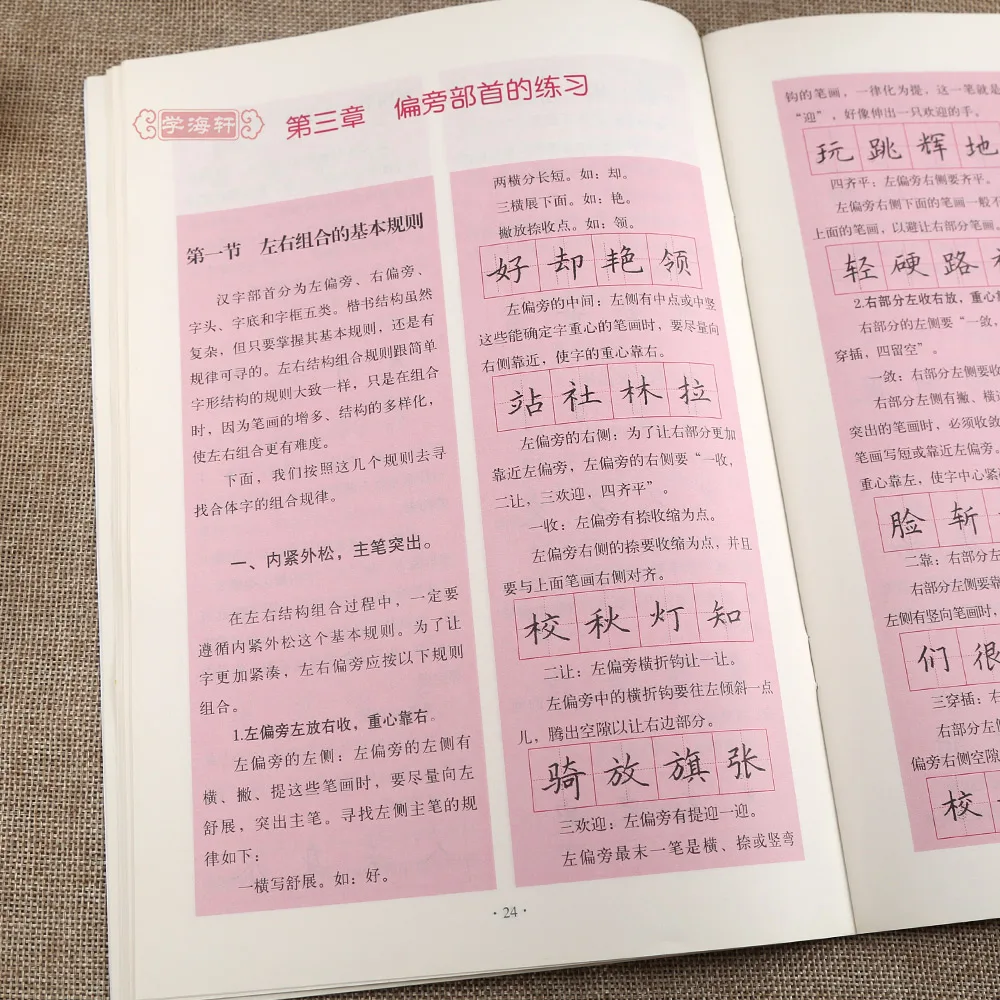 学海轩
第三章 偏旁部首的练习
第一节 左右组合的基本规则
汉字部首分为左偏旁、右偏旁、
字头、字底和字框五类。楷书结构虽然
复杂，但只要掌握其基本规则，还是有
规律可寻的。左右结构组合规则跟简单
字形结构的规则大致一样，只是在组合
时，因为笔画的增多、结构的多样化，
使左右组合更有难度。
下面，我们按照这几个规则去寻
找合体字的组合规律。
一、内紧外松，主笔突出。
在左右结构组合过程中，一定要
遵循内紧外松这个基本规则。为了让
字更加紧凑，左右偏旁应按以下规则
组合。
1.左偏旁左放右收，重心靠右。
左偏旁的左侧：左偏旁的左侧有
横、撇、提这些笔画时，要尽量向左
舒展，突出主笔。寻找左侧主笔的规
律如下：
一横写舒展。如：好。
两横分长短。如：却。
三横展下面。如：艳。
撇放捺收点。如：领。
好却艳领
左偏旁的中间：左侧有中点或中竖
这些能确定字重心的笔画时，要尽量向
右侧靠近，使字的重心靠右。
站社林拉
左偏旁的右侧：为了让右部分更加
靠近左偏旁，左偏旁的右侧要“一收，
二让，三欢迎，四齐平”。
一收：左偏旁有捺收缩为点。
左偏旁右侧的捺要收缩为点，并且
要与上面笔画右侧对齐。
校秋灯知
二让：左偏旁横折钩让一让。
左偏旁中的横折钩要往左倾斜一点
儿，腾出空隙以让右边部分。
骑放旗张
三欢迎：左偏旁有提迎一迎。
左偏旁最末一笔是横、捺或竖弯
·24·
钩的笔画，一律化为提，这一笔就是
“迎”，好像伸出一只欢迎的手。
玩跳辉地
四齐平：左偏旁右侧要齐平。
左偏旁右侧下面的笔画一般不
上面的笔画，以避让右部分笔画。
轻硬路
2.右部分左收右放，重心靠
右部分的左侧要“一敛，
穿插，四留空”。
一敛：右部分左侧要收
右部分左侧有撇、横
突出的笔画时，必须收敛
笔画写短或靠近左偏旁。
重心靠左，使字中心紧
脸斩
二靠：右部分左
右部分左侧要靠
左侧有竖向笔画时，
们很
三穿插：右
右部分左
偏旁右侧空隙
校